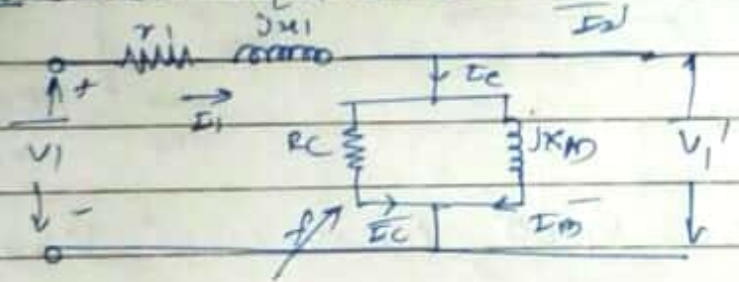 r1 jx1 I2'
+ Ie
I1
V1 RC jXm V1'
- Ic Im
f